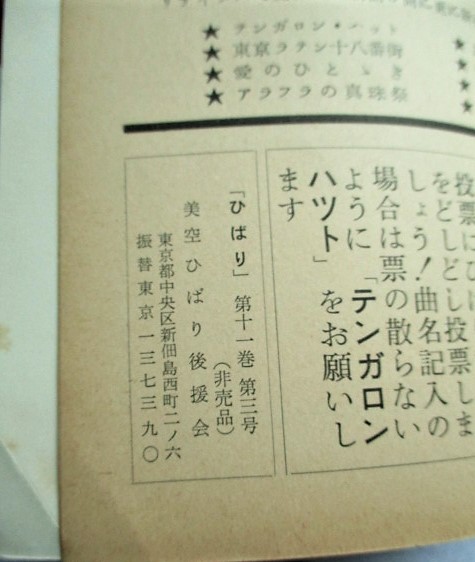 ★ テンガロン・ハット
★ 東京ラテン十八番街
★ 愛のひととき
★ アラフラの真珠祭
投票しま
をどしどし投票
しょう！曲名記入の
場合は票の散らない
ように「テンガロン
ハツト」をお願いし
ます
「ひばり」第十一巻 第三号
（非売品）
美空ひばり後援会
東京都中央区新佃島西町二ノ六
振替東京 一三七三九〇